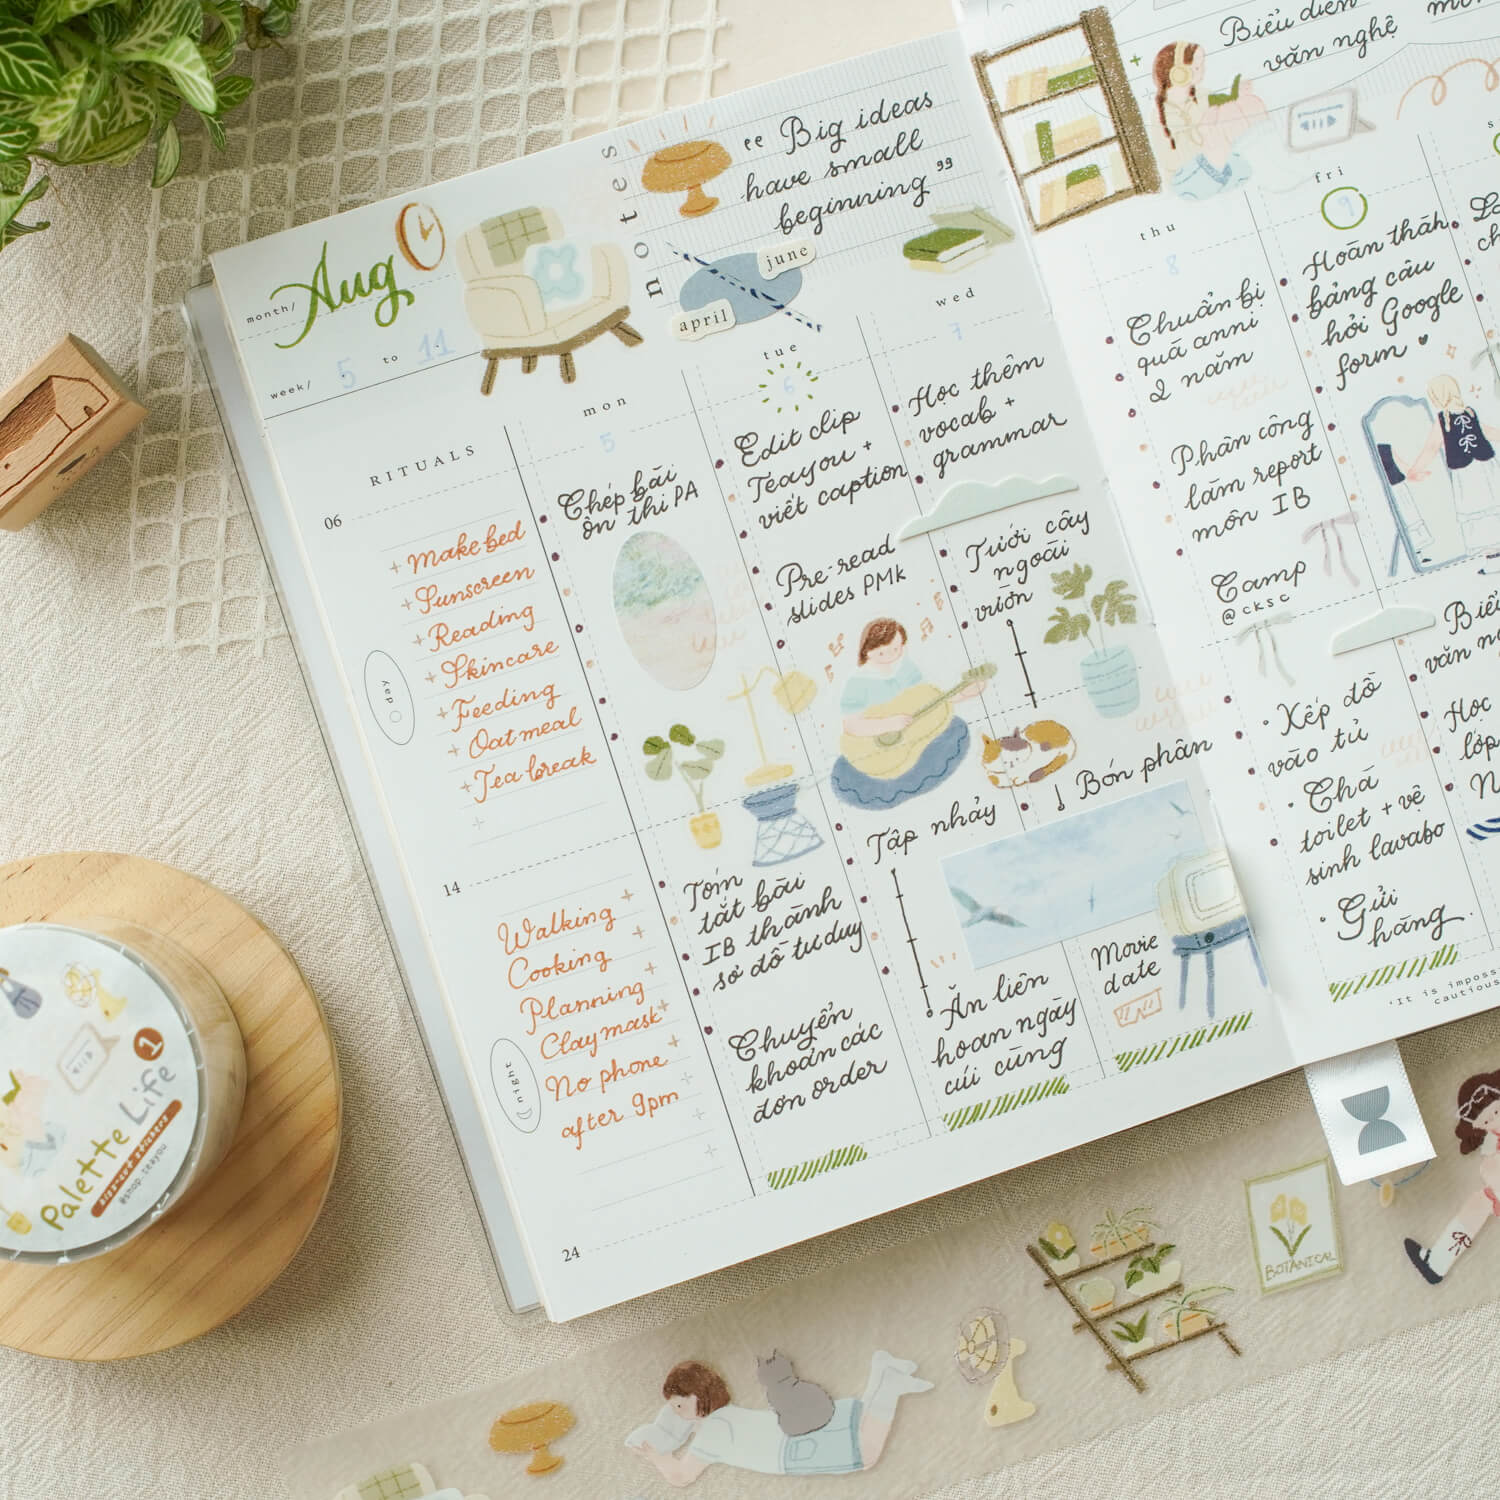 month/ Aug
week/ 5 to 11
notes
“ Big ideas
have small
beginning ”
june
april
RITUALS
06
+ Make bed
+ Sunscreen
+ Reading
+ Skincare
+ Feeding
+ Oatmeal
+ Tea break
day
14
Walking
Cooking
Planning
Clay mask
No phone
after 9pm
night
24
mon
5
Chép bài
ôn thi PA
Tóm
tắt bài
IB thành
sơ đồ tư duy
Chuyển
khoản các
đơn order
tue
6
Edit clip
Teayou +
viết caption
Pre-read
slides PMk
Tập nhảy
Ăn liên
hoan ngày
cúi cùng
wed
7
Học thêm
vocab +
grammar
Tưới cây
ngoài
vườn
Bón phân
Movie
date
Biểu diễn
văn nghệ
thu
8
Chuẩn bị
quà anni
2 năm
Phân công
làm report
môn IB
Camp
@cksc
• Xếp đồ
vào tủ
• Chà
toilet + vệ
sinh lavabo
• Gửi
hàng.
"It is imposs
cautious
fri
9
Hoàn thành
bảng câu
hỏi Google
form
Biể
văn n
Học
lớp
N
1
Palette Life
@shop.teayou
BOTANICAL